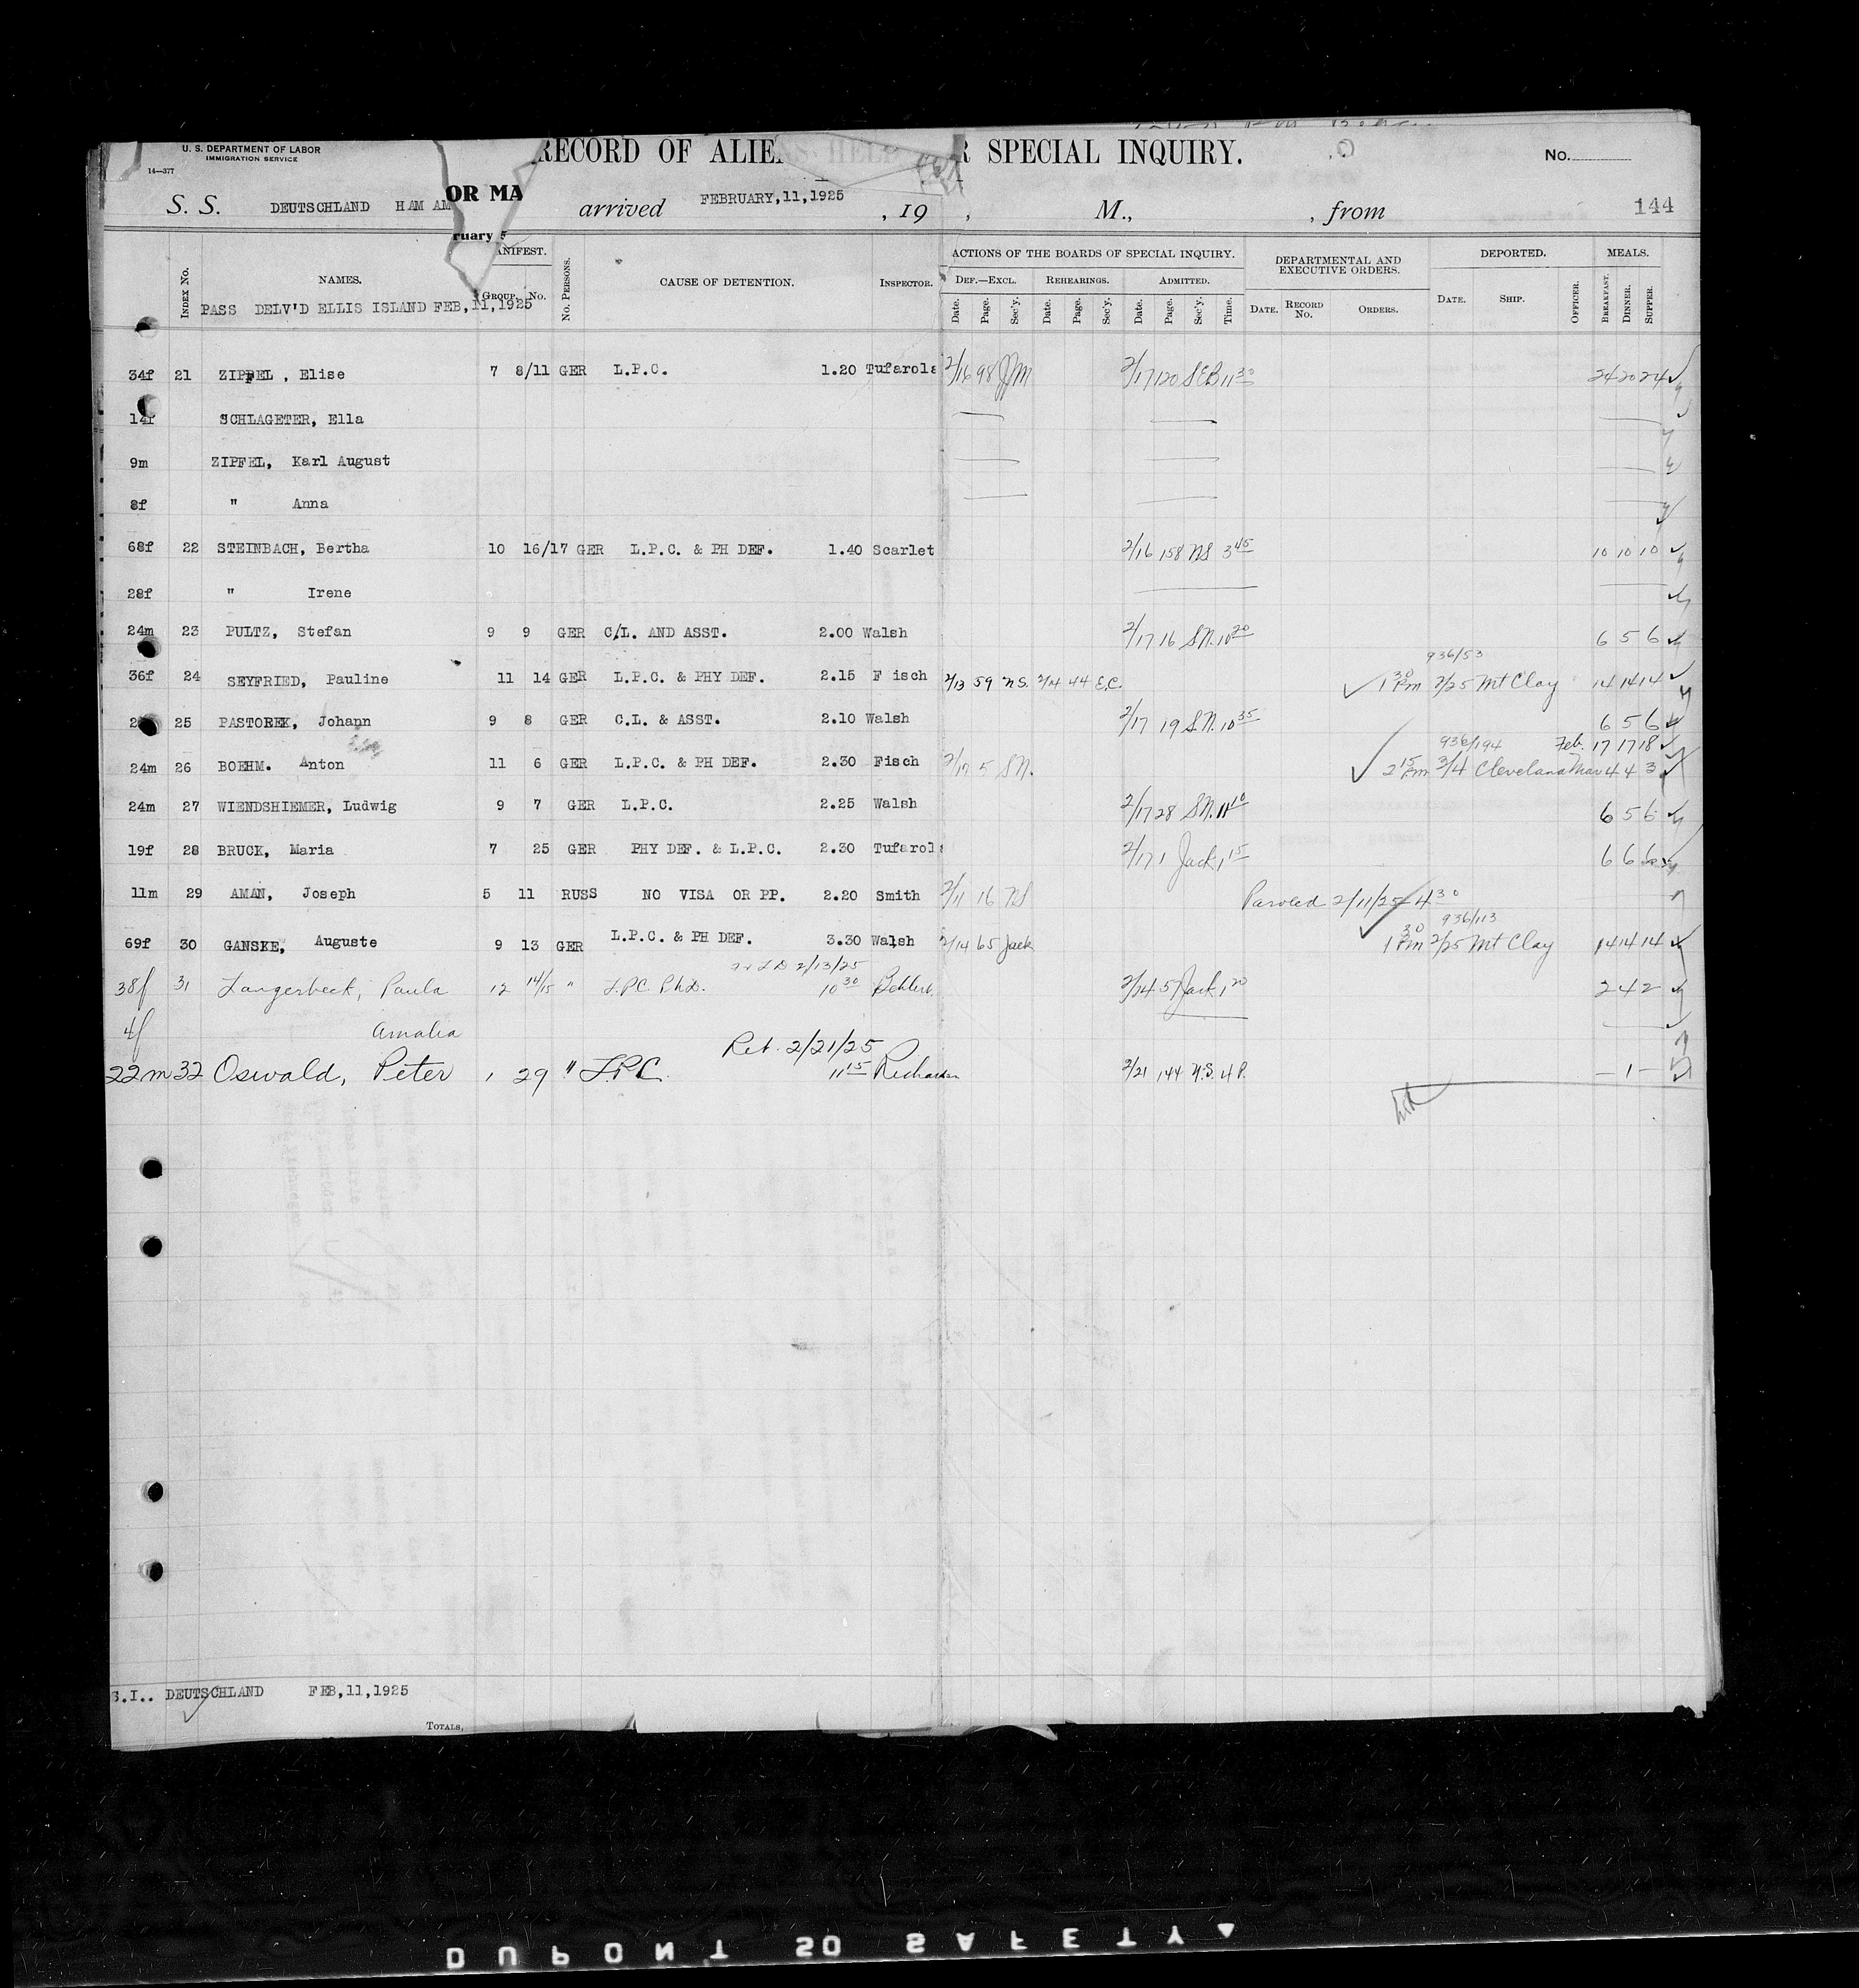 U. S. DEPARTMENT OF LABOR
IMMIGRATION SERVICE
14—377
RECORD OF ALIENS HELD R SPECIAL INQUIRY.
No.
OR MA
S. S. DEUTSCHLAND HAM AM arrived FEBRUARY,11,1925 , 19 , M., , from 144
ruary 5
Index No. NAMES. MANIFEST. Group. No. No. Persons. CAUSE OF DETENTION. Inspector. ACTIONS OF THE BOARDS OF SPECIAL INQUIRY. DEPARTMENTAL AND EXECUTIVE ORDERS. DEPORTED. MEALS.
Def.—Excl. Rehearings. Admitted.
Date. Page. Sec'y. Date. Page. Sec'y. Date. Page. Sec'y. Time. Date. Record No. Orders. Date. Ship. Officer. Breakfast. Dinner. Supper.
PASS DELV'D ELLIS ISLAND FEB,11,1925
34f 21 ZIPFEL , Elise 7 8/11 GER L.P.C. 1.20 Tufarola 2/16 98 JJM 2/17 120 SEB 11 30 24 20 24
14f SCHLAGETER, Ella
9m ZIPFEL, Karl August
8f " Anna
68f 22 STEINBACH, Bertha 10 16/17 GER L.P.C. & PH DEF. 1.40 Scarlet 2/16 158 NS 3 45 10 10 10
28f " Irene
24m 23 PULTZ, Stefan 9 9 GER C/L. AND ASST. 2.00 Walsh 2/17 16 S.N. 10 20 6 5 6
936/53
36f 24 SEYFRIED, Pauline 11 14 GER L.P.C. & PHY DEF. 2.15 F isch 2/13 59 N.S. 2/24 44 E.C. 1 30 Pm 2/25 Mt Clay 14 14 14
25 PASTOREK, Johann 9 8 GER C.L. & ASST. 2.10 Walsh 2/17 19 S.N. 10 35 6 5 6
936/194 Feb. 17 17 18
24m 26 BOEHM. Anton 11 6 GER L.P.C. & PH DEF. 2.30 Fisch 2/17 5 S.N. 2 15 Pm 3/4 Cleveland Mar 4 4 3
24m 27 WIENDSHIEMER, Ludwig 9 7 GER L.P.C. 2.25 Walsh 2/17 28 S.N. 11 10 6 5 6
19f 28 BRUCK, Maria 7 25 GER PHY DEF. & L.P.C. 2.30 Tufarola 2/17 1 Jack 1 15 6 6 6
11m 29 AMAN, Joseph 5 11 RUSS NO VISA OR PP. 2.20 Smith 2/11 16 NS Paroled 2/11/25 4 30
936/113
69f 30 GANSKE, Auguste 9 13 GER L.P.C. & PH DEF. 3.30 Walsh 2/14 65 Jack 1 30 Pm 2/25 Mt Clay 14 14 14
2/13/25
38f 31 Langerbeck, Paula 12 14/15 " L.P.C. Ph.D. 10 30 2/14 5 Jack 1 20 2 4 2
4f Amalia
Ret. 2/21/25
22m 32 Oswald, Peter 1 29 " L.P.C. 11 15 2/21 144 N.S. 4 P. — 1 —
S.I.. DEUTSCHLAND FEB,11,1925
Totals,
DUPONT SO SAFETY